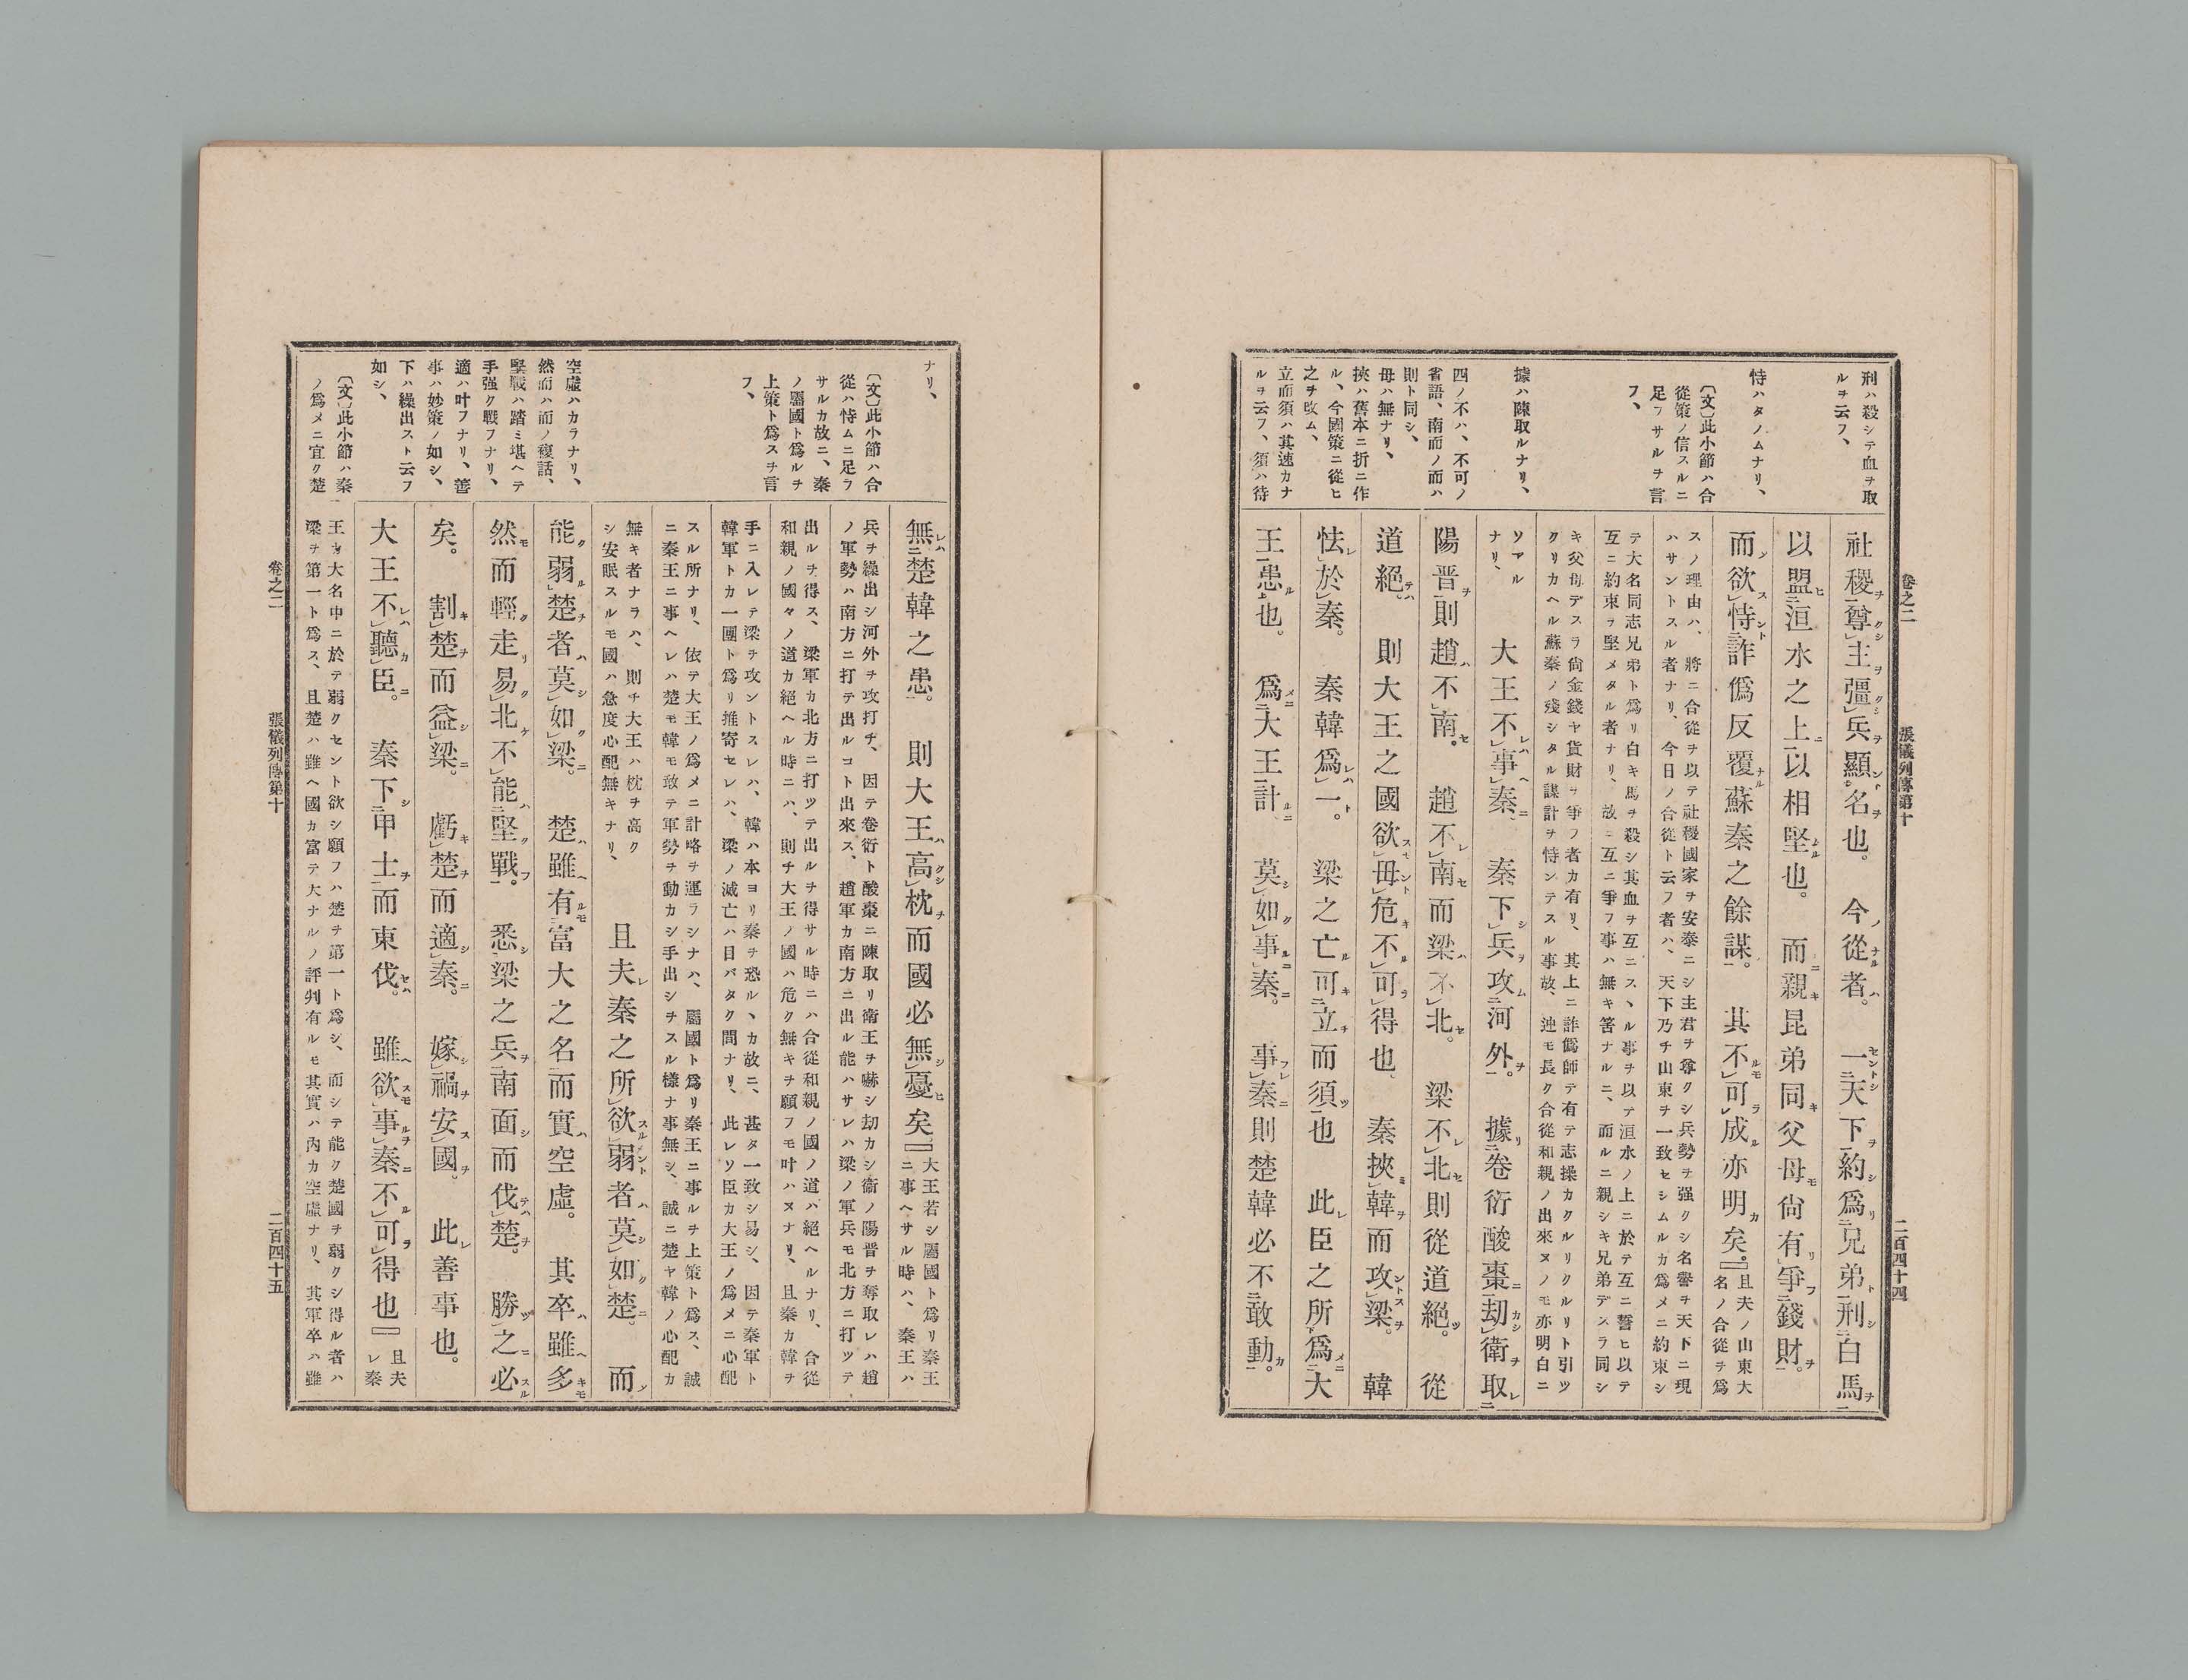 卷之二
張儀列傳第十
二百四十四
刑ハ殺シテ血ヲ取
ルヲ云フ、
恃ハタノムナリ、
〔文〕此小節ハ合
從策ノ信スルニ
足ラサルヲ言
フ、
據ハ陳取ルナリ、
四ノ不ハ、不可ノ
省語、南而ノ而ハ
則ト同シ、
毋ハ無ナリ、
挾ハ舊本ニ折ニ作
ル、今國策ニ從ヒ
之ヲ改ム、
立而須ハ其速カナ
ルヲ云フ、須ハ待
社稷尊主彊兵顯名也。今從者。一天下約爲兄弟刑白馬
以盟洹水之上以相堅也。而親昆弟同父母尚有爭錢財。
而欲恃詐僞反覆蘇秦之餘謀。其不可成亦明矣。』
且夫ノ山東大
名ノ合從ヲ爲
スノ理由ハ、將ニ合從ヲ以テ社稷國家ヲ安泰ニシ主君ヲ尊クシ兵勢ヲ强クシ名譽ヲ天下ニ現
ハサントスル者ナリ、今日ノ合從ト云フ者ハ、天下乃チ山東ヲ一致セシムルカ爲メニ約束シ
テ大名同志兄弟ト爲リ白キ馬ヲ殺シ其血ヲ互ニスヽル事ヲ以テ洹水ノ上ニ於テ互ニ誓ヒ以テ
互ニ約束ヲ堅メタル者ナリ、故ニ互ニ爭フ事ハ無キ筈ナルニ、而ルニ親シキ兄弟デスラ同シ
キ父母デスラ尚金錢ヤ貨財ヲ爭フ者カ有リ、其上ニ詐僞師テ有テ志操カクルリクルリト引ツ
クリカヘル蘇秦ノ殘シタル謀計ヲ恃ンテスル事故、迚モ長ク合從和親ノ出來ヌノモ亦明白ニ
ソアル
ナリ、
大王不事秦、秦下兵攻河外。據卷衍酸棗劫衛取
陽晋則趙不南。趙不南而梁不北。梁不北則從道絕。從
道絕。則大王之國欲毋危不可得也。秦挾韓而攻梁。韓
怯於秦。秦韓爲一。梁之亡可立而須也此臣之所爲大
王患也。爲大王計。莫如事秦。事秦則楚韓必不敢動。
ナリ、
〔文〕此小節ハ合
從ハ恃ムニ足ラ
サルカ故ニ、秦
ノ屬國ト爲ルヲ
上策ト爲スヲ言
フ、
空虛ハカラナリ、
然而ハ而ノ複話、
堅戰ハ踏ミ堪ヘテ
手强ク戰フナリ、
適ハ叶フナリ、善
事ハ妙策ノ如シ、
下ハ繰出ストト云フ
如シ、
〔文〕此小節ハ秦
ノ爲メニ宜ク楚
無楚韓之患。則大王高枕而國必無憂矣』
大王若シ屬國ト爲リ秦王
ニ事ヘサル時ハ、秦王ハ
兵ヲ繰出シ河外ヲ攻打チ、因テ卷衍ト酸棗ニ陳取リ衛王ヲ嚇シ劫カシ衛ノ陽晋ヲ奪取レハ趙
ノ軍勢ハ南方ニ打テ出ルコト出來ス、趙軍カ南方ニ出ル能ハサレハ梁ノ軍兵モ北方ニ打ツテ
出ルヲ得ス、梁軍カ北方ニ打ツテ出ルヲ得サル時ニハ合從和親ノ國ノ道ハ絕ヘルナリ、合從
和親ノ國々ノ道カ絕ヘル時ニハ、則チ大王ノ國ハ危ク無キヲ願フモ叶ハヌナリ、且秦カ韓ヲ
手ニ入レテ梁ヲ攻ントスレハ、韓ハ本ヨリ秦ヲ恐ルヽカ故ニ、甚タ一致シ易シ、因テ秦軍ト
韓軍トカ一團ト爲リ推寄セレハ、梁ノ滅亡ハ目バタク間ナリ、此レソ臣カ大王ノ爲メニ心配
スル所ナリ、依テ大王ノ爲メニ計略ヲ運ラシナハ、屬國ト爲リ秦王ニ事ルヲ上策ト爲ス、誠
ニ秦王ニ事ヘレハ楚モ韓モ敢テ軍勢ヲ動カシ手出シヲスル樣ナ事無シ、誠ニ楚ヤ韓ノ心配カ
無キ者ナラハ、則チ大王ハ枕ヲ高ク
シ安眠スルモ國ハ急度心配無キナリ、
且夫秦之所欲弱者莫如楚。而
能弱楚者莫如梁。楚雖有富大之名而實空虛。其卒雖多
然而輕走易北不能堅戰。悉梁之兵南面而伐楚。勝之必
矣。割楚而益梁。虧楚而適秦。嫁禍安國。此善事也。
大王不聽臣。秦下甲士而東伐。雖欲事秦不可得也』
且夫
レ秦
王カ大名中ニ於テ弱クセント欲シ願フハ楚ヲ第一ト爲シ、而シテ能ク楚國ヲ弱クシ得ル者ハ
梁ヲ第一ト爲ス、且楚ハ雖ヘ國カ富テ大ナルノ評判有ルモ其實ハ內カ空虛ナリ、其軍卒ハ雖
卷之二
張儀列傳第十
二百四十五